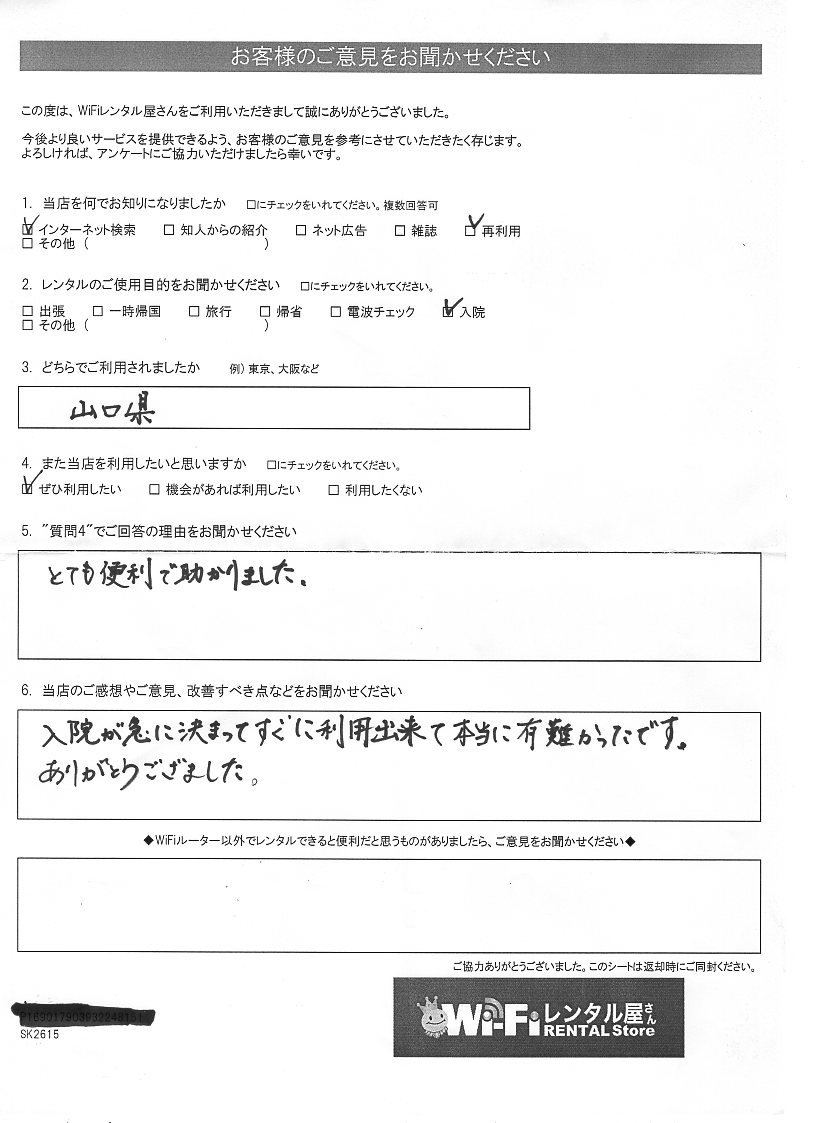 お客様のご意見をお聞かせください
この度は、WiFiレンタル屋さんをご利用いただきまして誠にありがとうございました。
今後より良いサービスを提供できるよう、お客様のご意見を参考にさせていただきたく存じます。
よろしければ、アンケートにご協力いただけましたら幸いです。
1. 当店を何でお知りになりましたか □にチェックをいれてください。複数回答可
☑ インターネット検索 □ 知人からの紹介 □ ネット広告 □ 雑誌 ☑ 再利用
□ その他 ( )
2. レンタルのご使用目的をお聞かせください □にチェックをいれてください。
□ 出張 □ 一時帰国 □ 旅行 □ 帰省 □ 電波チェック ☑ 入院
□ その他 ( )
3. どちらでご利用されましたか 例) 東京、大阪など
山口県
4. また当店を利用したいと思いますか □にチェックをいれてください。
☑ ぜひ利用したい □ 機会があれば利用したい □ 利用したくない
5. "質問4"でご回答の理由をお聞かせください
とても便利で助かりました。
6. 当店のご感想やご意見、改善すべき点などをお聞かせください
入院が急に決まってすぐに利用出来て本当に有難かったです。
ありがとうございました。
◆WiFiルーター以外でレンタルできると便利だと思うものがありましたら、ご意見をお聞かせください◆
ご協力ありがとうございました。このシートは返却時にご同封ください。
Wi-Fiレンタル屋さん
RENTAL Store
SK2615